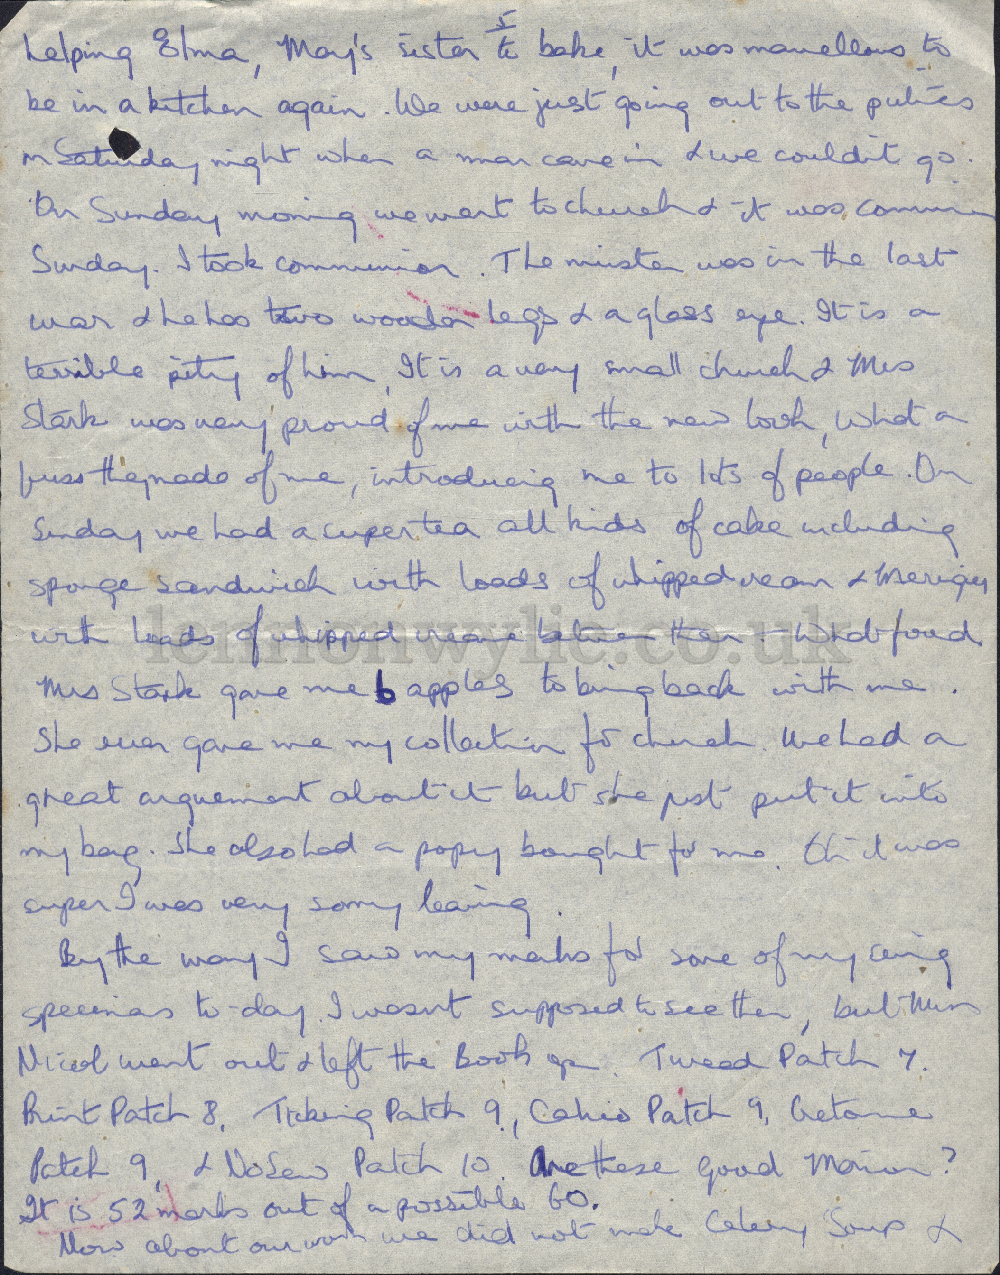 5
helping Elma, May's sister to bake, it was marvellous to
be in a kitchen again. We were just going out to the pictures
on Saturday night when a man came in & we couldn't go.
On Sunday morning we went to church & it was communion
Sunday. I took communion. The minister was in the last
war & he has two wooden legs & a glass eye. It is a
terrible pity of him, It is a very small church & Mrs
Stark was very proud of me with the new look, What a
fuss they made of me, introducing me to lots of people. On
Sunday we had a super tea all kinds of cake including
sponge sandwich with loads of whipped cream & Meringues
with loads of whipped cream between them - What food
lennonwylie.co.uk
Mrs Stark gave me 6 apples to bring back with me.
She even gave me my collection for church. We had a
great arguement about it but she just put it into
my bag. She also had a popy bought for me. Oh it was
super I was very sorry leaving.
By the way I saw my marks for some of my sewing
specimens to-day. I wasn't supposed to see them, but Miss
Nicol went out & left the Book open. Tweed Patch 7.
Print Patch 8, Ticking Patch 9, Calico Patch 9, Cretonne
Patch 9, & No Sew Patch 10. Are these good Marion?
It is 52 marks out of a possible 60.
Now about our work we did not make Celery Soup &